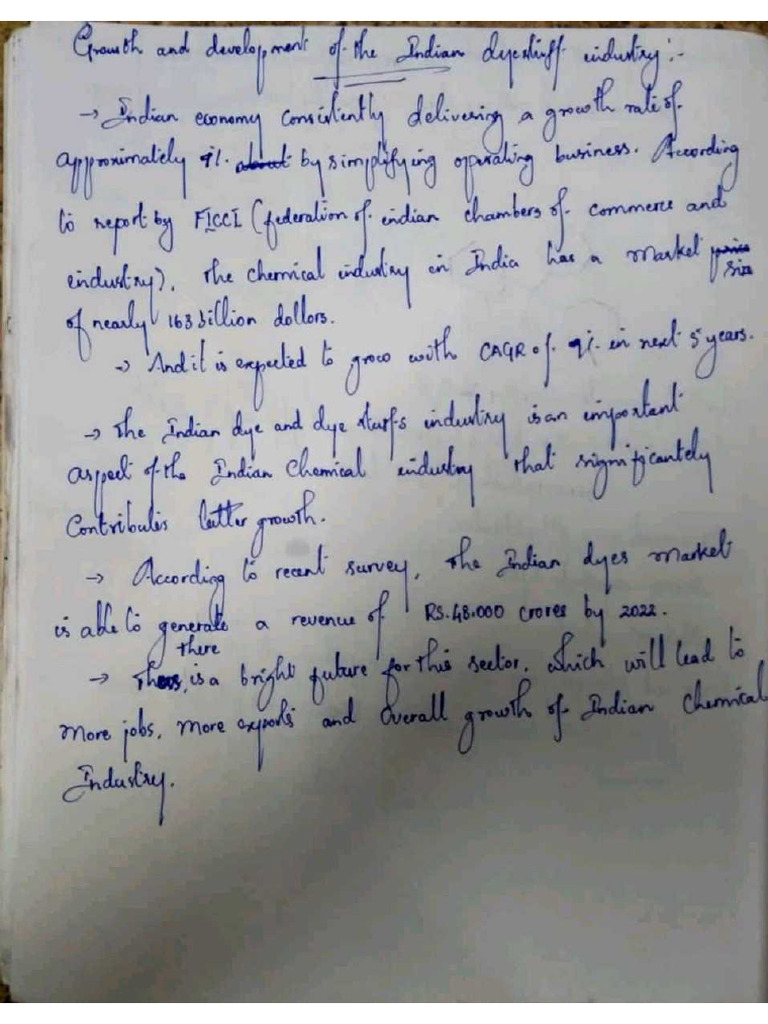 Growth and development of the Indian dyestuff industry:-
→ Indian economy consistently delivering a growth rate of
approximately 9%. about by simplifying operating business. According
to report by FICCI (federation of indian chambers of commerce and
industry), the chemical industry in India has a market price size
of nearly 163 billion dollors.
→ And it is expected to grow with CAGR of 9% in next 5 years.
→ The Indian dye and dye stuffs industry is an important
aspect of the Indian Chemical industry that significantely
Contributes latter growth.
→ According to recent survey, the Indian dyes market
is able to generate a revenue of RS.48.000 crores by 2022.
→ there is a bright future for this sector, which will lead to
more jobs, more exports and overall growth of Indian Chemical
Industry.